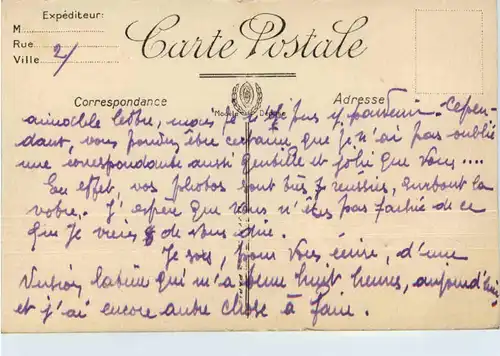 Expéditeur:
M
Rue
Ville 2/
Carte Postale
Correspondance
Adresse
Modèle Déposé
aimable lettre, mais je n'ai pus y parvenir. Cepen-
dant, vous pouvez être certaine, que je n'ai pas oublié
une correspondante aussi gentille et jolie que vous ....
En effet, vos photos sont très réussies, surtout la
votre. J'espère que vous n'êtes pas fachée de ce
que je viens de vous dire.
Je sors, pour vous écrire, d'une
Version latine qui m'a tenue huit heures, aujourd'hui
et j'ai encore autre chose à faire.